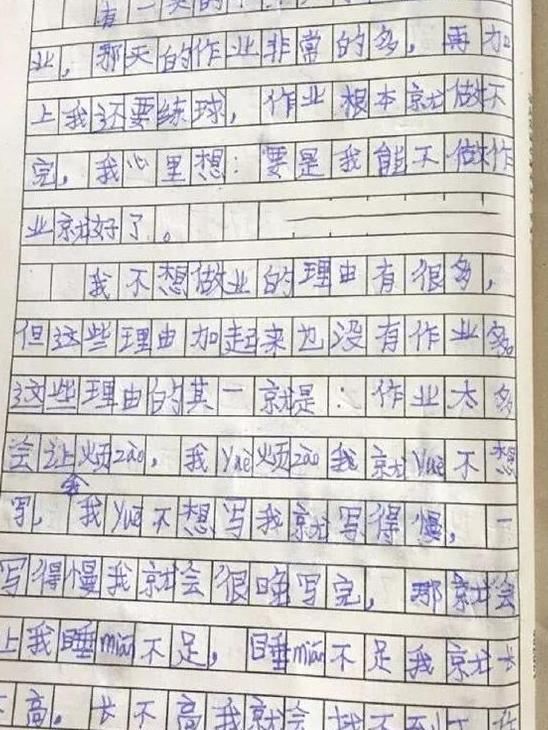 有一
业，那天的作业非常的多，再加
上我还要练球，作业根本就做不
完，我心里想：要是我能不做作
业就好了。
我不想做业的理由有很多，
但这些理由加起来也没有作业多。
这些理由的其一就是：作业太多
会让我烦zào，我yuè烦zào我就yuè不想
写，我yuè不想写我就写得慢，一
写得慢我就会很晚写完，那就会
上我睡mián不足，睡mián不足我就长
不高。长不高我就会找不到工作